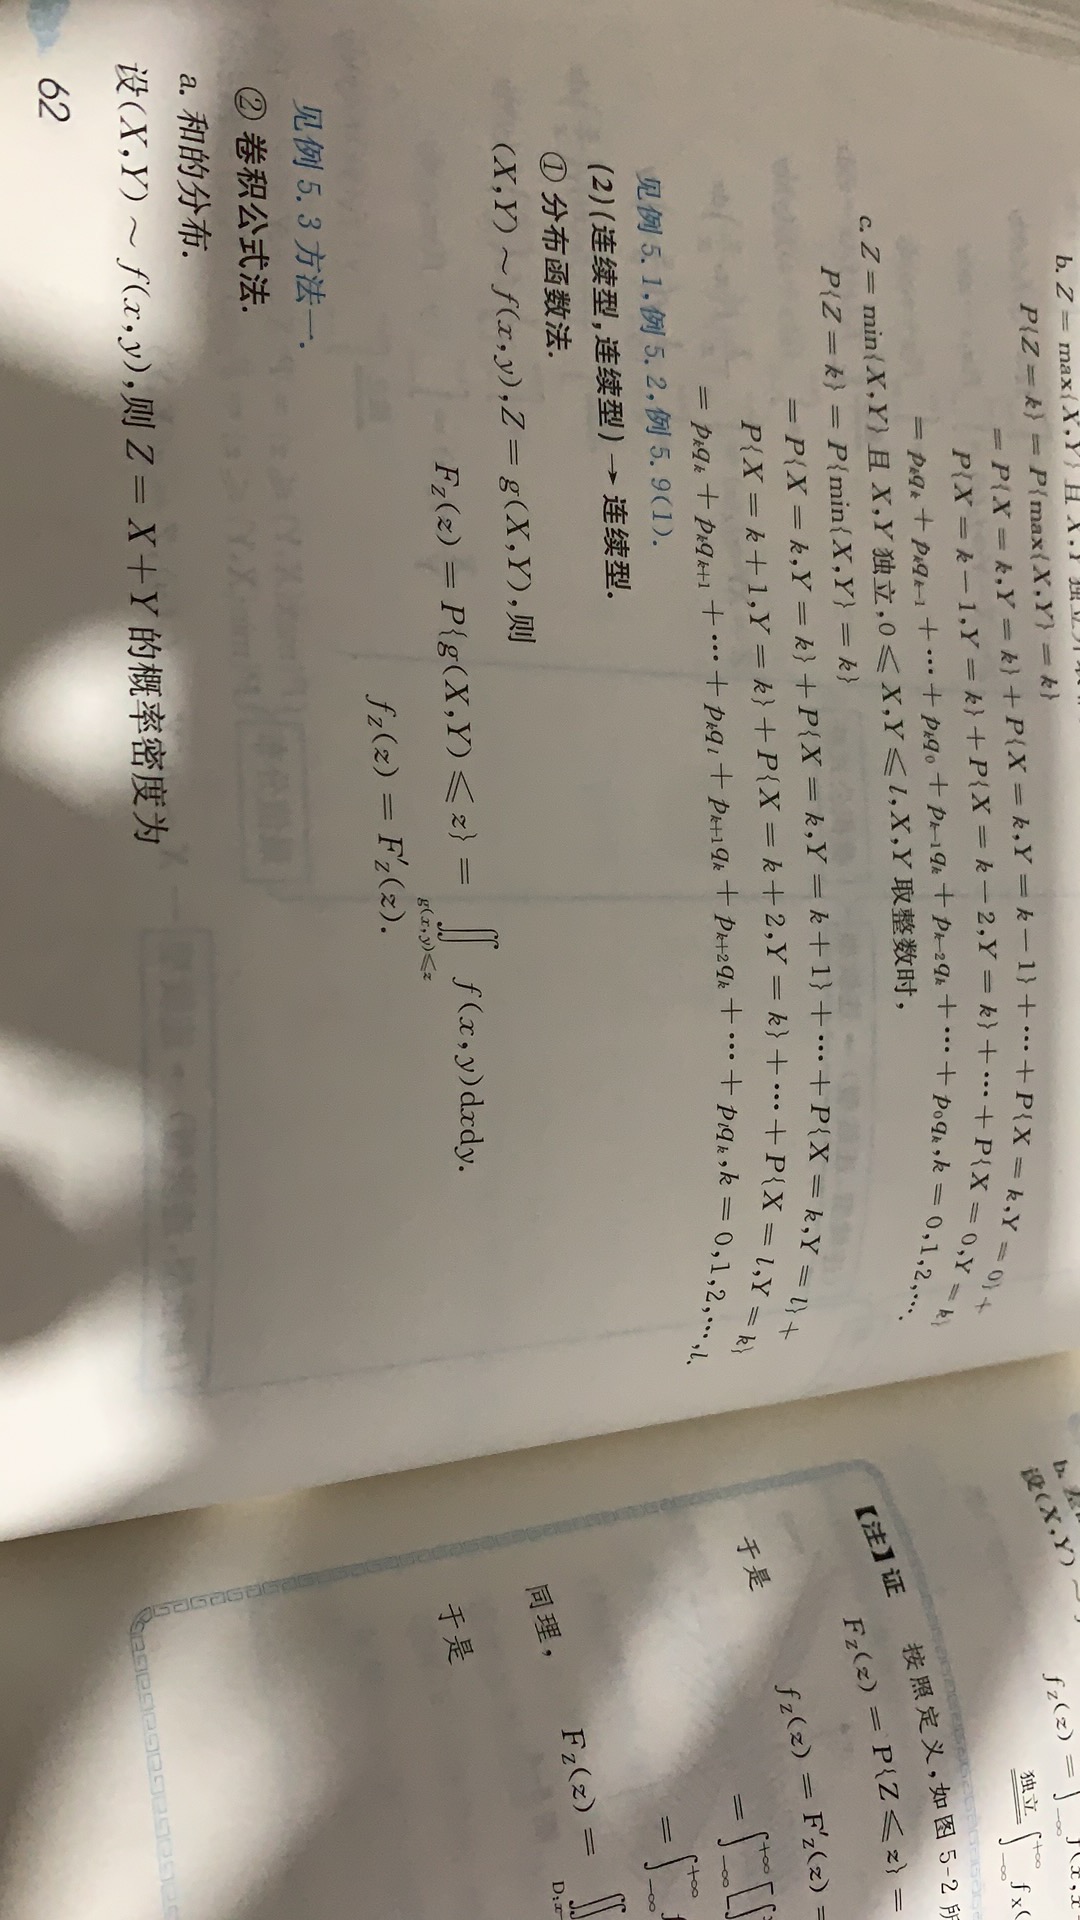 b. Z = max{X,Y} 且 X,Y 独立
P{Z = k} = P{max{X,Y} = k}
= P{X = k,Y = k} + P{X = k,Y = k − 1} + ⋯ + P{X = k,Y = 0} +
P{X = k − 1,Y = k} + P{X = k − 2,Y = k} + ⋯ + P{X = 0,Y = k}
= pₖqₖ + pₖqₖ₋₁ + ⋯ + pₖq₀ + pₖ₋₁qₖ + pₖ₋₂qₖ + ⋯ + p₀qₖ,k = 0,1,2,⋯.
c. Z = min{X,Y} 且 X,Y 独立,0 ⩽ X,Y ⩽ l,X,Y 取整数时,
P{Z = k} = P{min{X,Y} = k}
= P{X = k,Y = k} + P{X = k,Y = k + 1} + ⋯ + P{X = k,Y = l} +
P{X = k + 1,Y = k} + P{X = k + 2,Y = k} + ⋯ + P{X = l,Y = k}
= pₖqₖ + pₖqₖ₊₁ + ⋯ + pₖqₗ + pₖ₊₁qₖ + pₖ₊₂qₖ + ⋯ + pₗqₖ,k = 0,1,2,⋯,l.
见例 5.1,例 5.2,例 5.9(1).
(2)(连续型,连续型) → 连续型.
① 分布函数法.
(X,Y) ~ f(x,y),Z = g(X,Y),则
F_Z(z) = P{g(X,Y) ⩽ z} = ∬_{g(x,y)⩽z} f(x,y)dxdy.
f_Z(z) = F′_Z(z).
见例 5.3 方法一.
② 卷积公式法.
a. 和的分布.
设(X,Y) ~ f(x,y),则 Z = X + Y 的概率密度为
62
b.
设(X,Y) ~
f_Z(z) = ∫_{−∞}
独立 ∫_{−∞}^{+∞} f_X(
【注】证 按照定义,如图 5-2 所
F_Z(z) = P{Z ⩽ z} =
于是 f_Z(z) = F′_Z(z) =
= ∫_{−∞}^{+∞} [∫
= ∫_{−∞}^{+∞} f
同理, F_Z(z) = ∬
于是